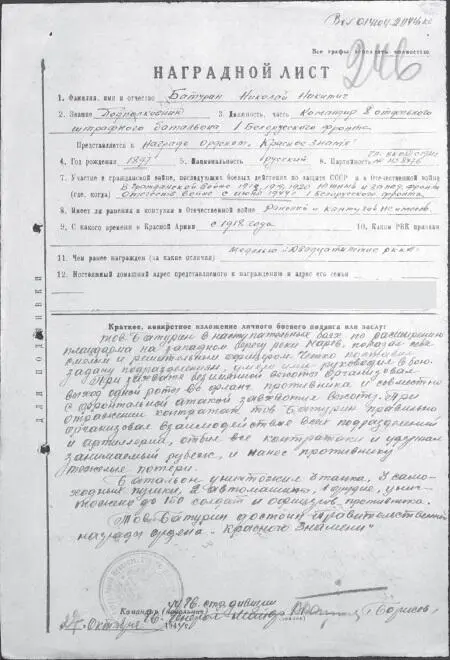 Все графы заполнять полностью
246
НАГРАДНОЙ ЛИСТ
1. Фамилия, имя и отчество Батурин Николай Никитич
2. Звание Подполковник 3. Должность, часть Командир 8 отдельного
штрафного батальона 1 Белорусского фронта
Представляется к Награде Орденом „Красное Знамя"
4. Год рождения 1897 5. Национальность русский 6. Партийность
7. Участие в гражданской войне, последующих боевых действиях по защите СССР и в Отечественной войне
(где, когда) В Гражданской войне 1918, 1919, 1920 Южный и запад. фронты
Отечеств. войне с июня 1944 г. 1 Белорусского фронта.
8. Имеет ли ранения и контузии в Отечественной войне Ранений и контузий не имеет.
9. С какого времени в Красной Армии с 1918 года 10. Каким РВК призван
11. Чем ранее награжден (за какие отличия) Медалью „Двадцатилетие РККА"
12. Постоянный домашний адрес представляемого к награждению и адрес его семьи
ДЛЯ ПОДШИВКИ
Краткое, конкретное изложение личного боевого подвига или заслуг:
Тов. Батурин в наступательных боях по расширению
плацдарма на западном берегу реки Нарев, показал себя
смелым и решительным офицером. Четко поставил
задачу подразделениям, умело ими руководил в бою.
При захвате безымянной высоты организовал
выход одной роты во фланг противника и совместно
с фронтальной атакой завладел высоту. При
отражении контратак тов. Батурин правильно
организовал взаимодействие всех подразделений
и артиллерии, отбил все контратаки и удержал
занимаемый рубеж, и нанес противнику
тяжелые потери.
Батальон уничтожил танка, 3 само-
ходных пушки, 2 автомашины, 1 орудие, унич-
тожено до 150 солдат и офицеров противника.
Тов. Батурин достоин Правительственной
награды ордена „Красного Знамени"
Командир 76 стр. дивизии
Генерал майор (Борисов)
27 Октября 1944г.